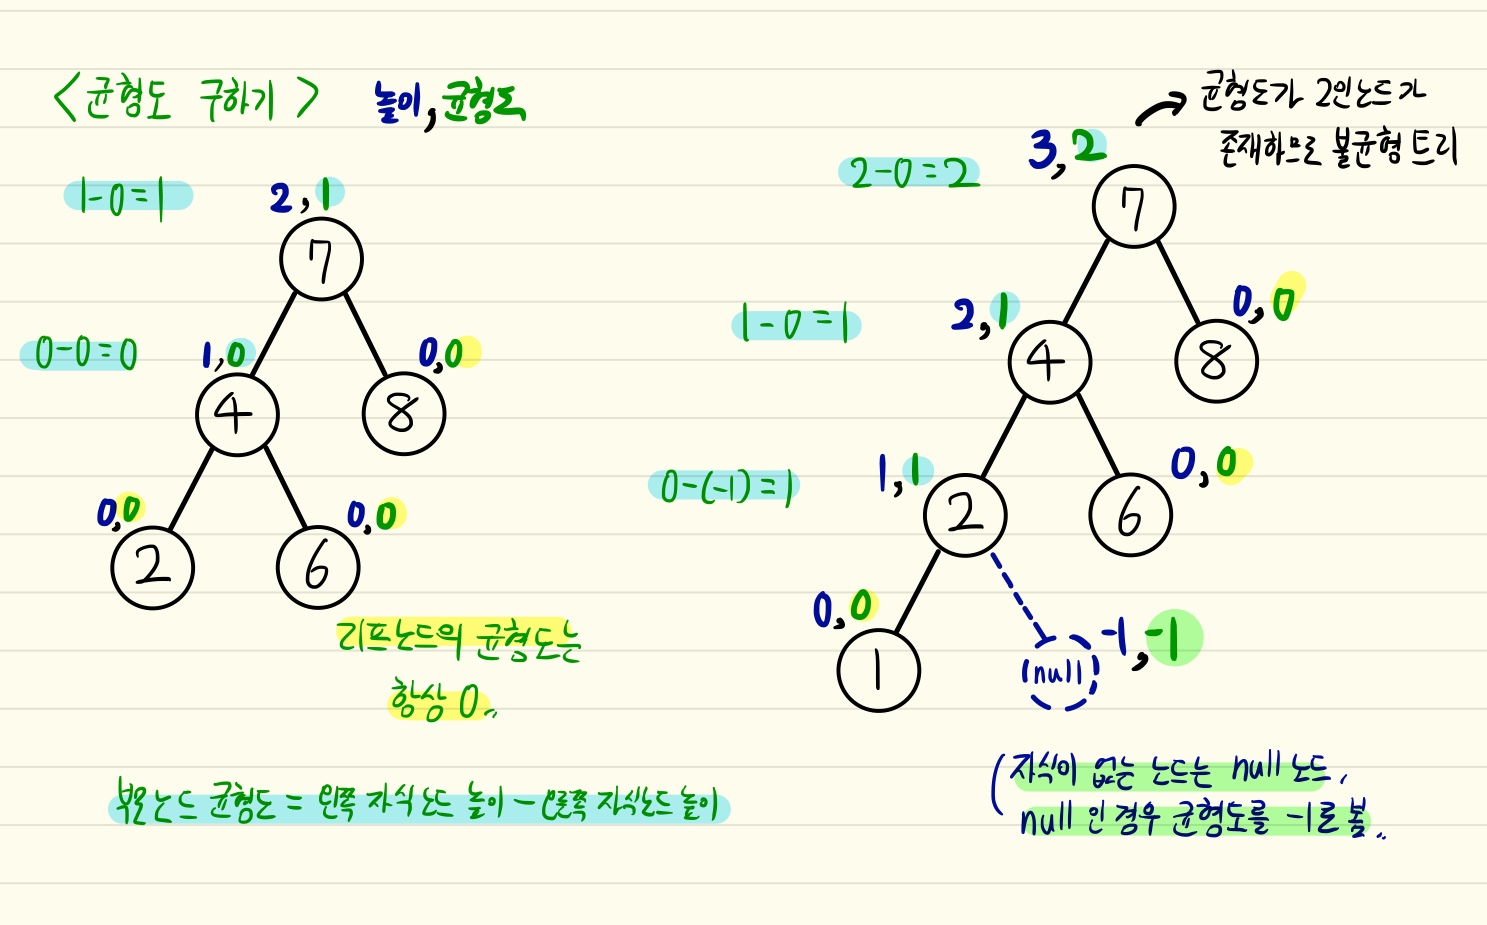 <균형도 구하기> 높이, 균형도
1-0=1
2, 1
7
0-0=0
1, 0
0, 0
4
8
0, 0
0, 0
2
6
리프노드의 균형도는
항상 0..
부모노드 균형도 = 왼쪽 자식노드 높이 - 오른쪽 자식노드 높이
균형도가 2인노드가
존재하므로 불균형 트리
2-0=2
3, 2
7
1-0=1
2, 1
0, 0
4
8
0-(-1)=1
1, 1
0, 0
2
6
0, 0
-1, -1
1
null
(자식이 없는 노드는 null 노드.
null 인 경우 균형도를 -1로 봄..